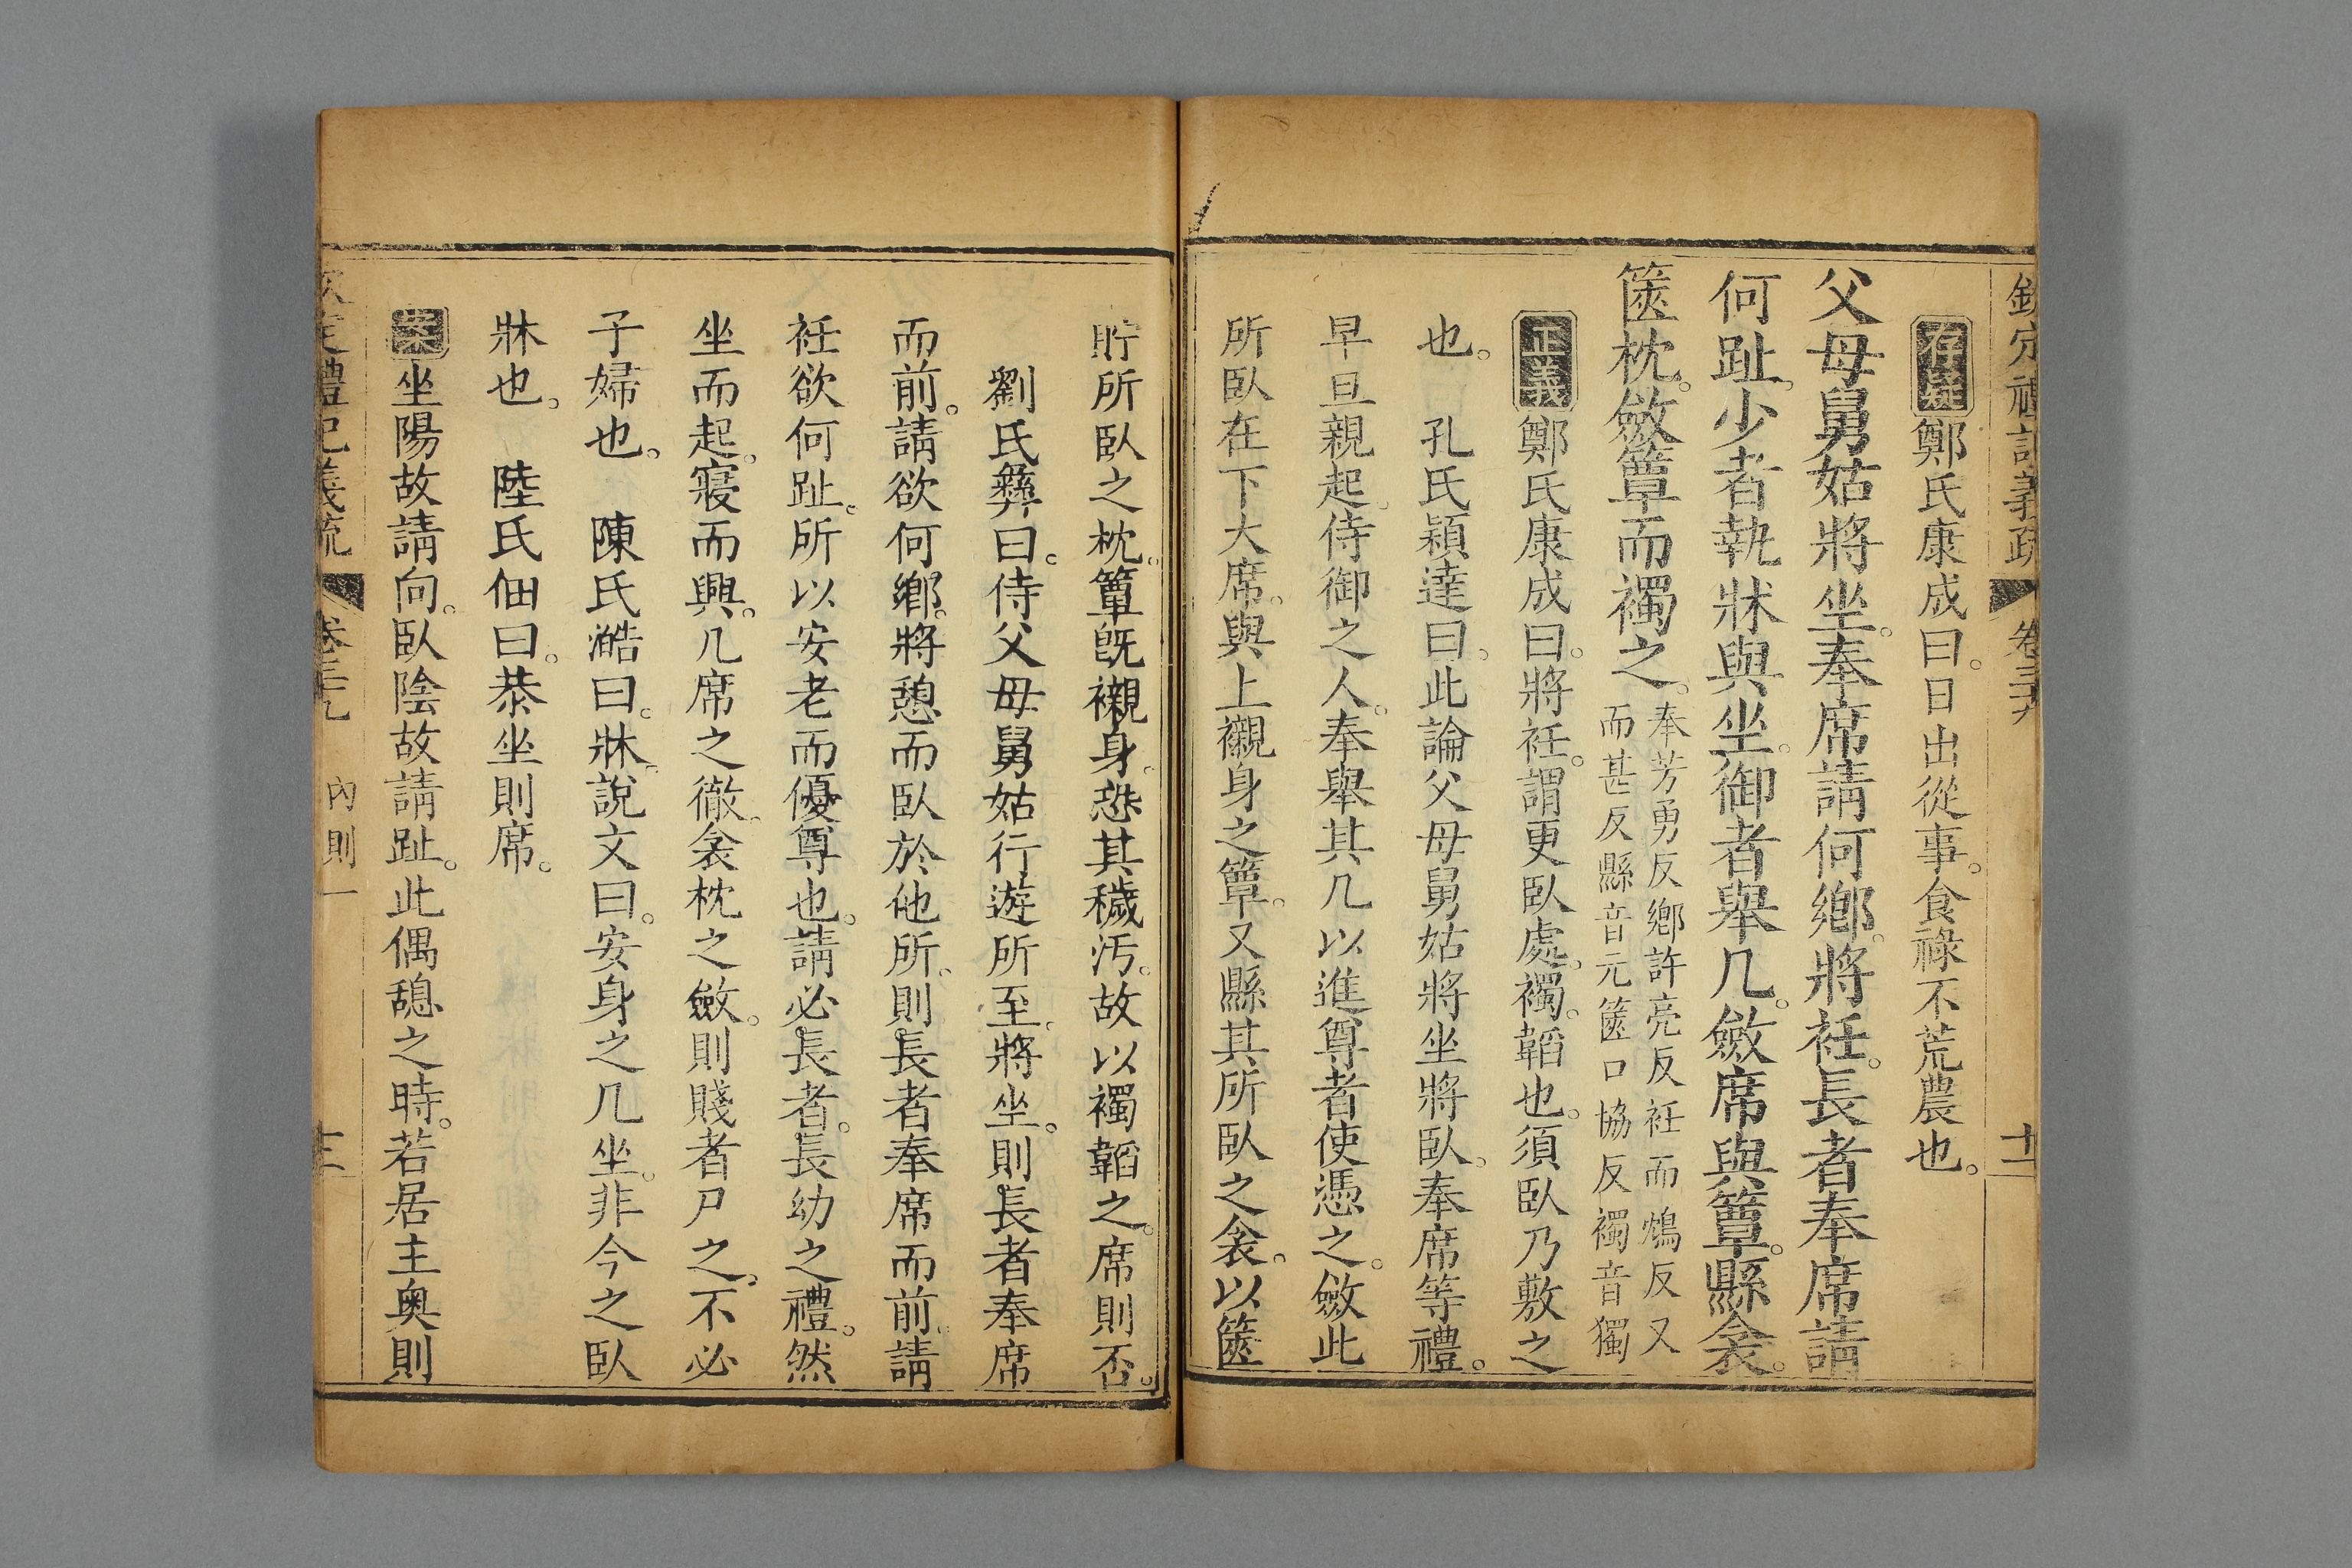 欽定禮記義疏 卷三十九 十二
存疑鄭氏康成曰。日出從事。食祿不荒農也。
父母舅姑將坐。奉席請何鄉。將衽。長者奉席請
何趾。少者執牀與坐。御者舉几。斂席與簟。縣衾。
篋枕。斂簟而襡之。
奉芳勇反鄉許亮反衽而鴆反又
而甚反縣音元篋口協反襡音獨
正義鄭氏康成曰。將衽。謂更臥處。襡。韜也。須臥乃敷之
也。 孔氏穎達曰。此論父母舅姑將坐將臥。奉席等禮。
早旦親起。侍御之人。奉舉其几以進尊者使憑之。斂此
所臥在下大席。與上襯身之簟。又縣其所臥之衾。以篋
貯所臥之枕。簟旣襯身。恐其穢汚。故以襡韜之。席則否。
劉氏彝曰。侍父母舅姑行遊所至。將坐。則長者奉席
而前。請欲何鄉。將憩而臥於他所。則長者奉席而前。請
衽欲何趾。所以安老而優尊也。請必長者。長幼之禮。然
坐而起。寢而興。几席之徹。衾枕之斂。則賤者尸之。不必
子婦也。 陳氏澔曰。牀。說文曰。安身之几坐。非今之臥
牀也。 陸氏佃曰。恭坐則席。
案坐陽故請向。臥陰故請趾。此偶憩之時。若居主奧則
欽定禮記義疏 卷三十九 內則一